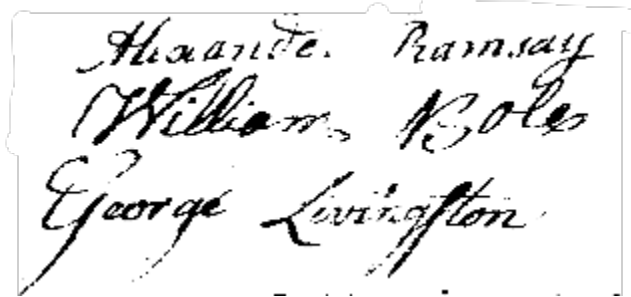 Alexander Ramsay
William Boles
George Livingston